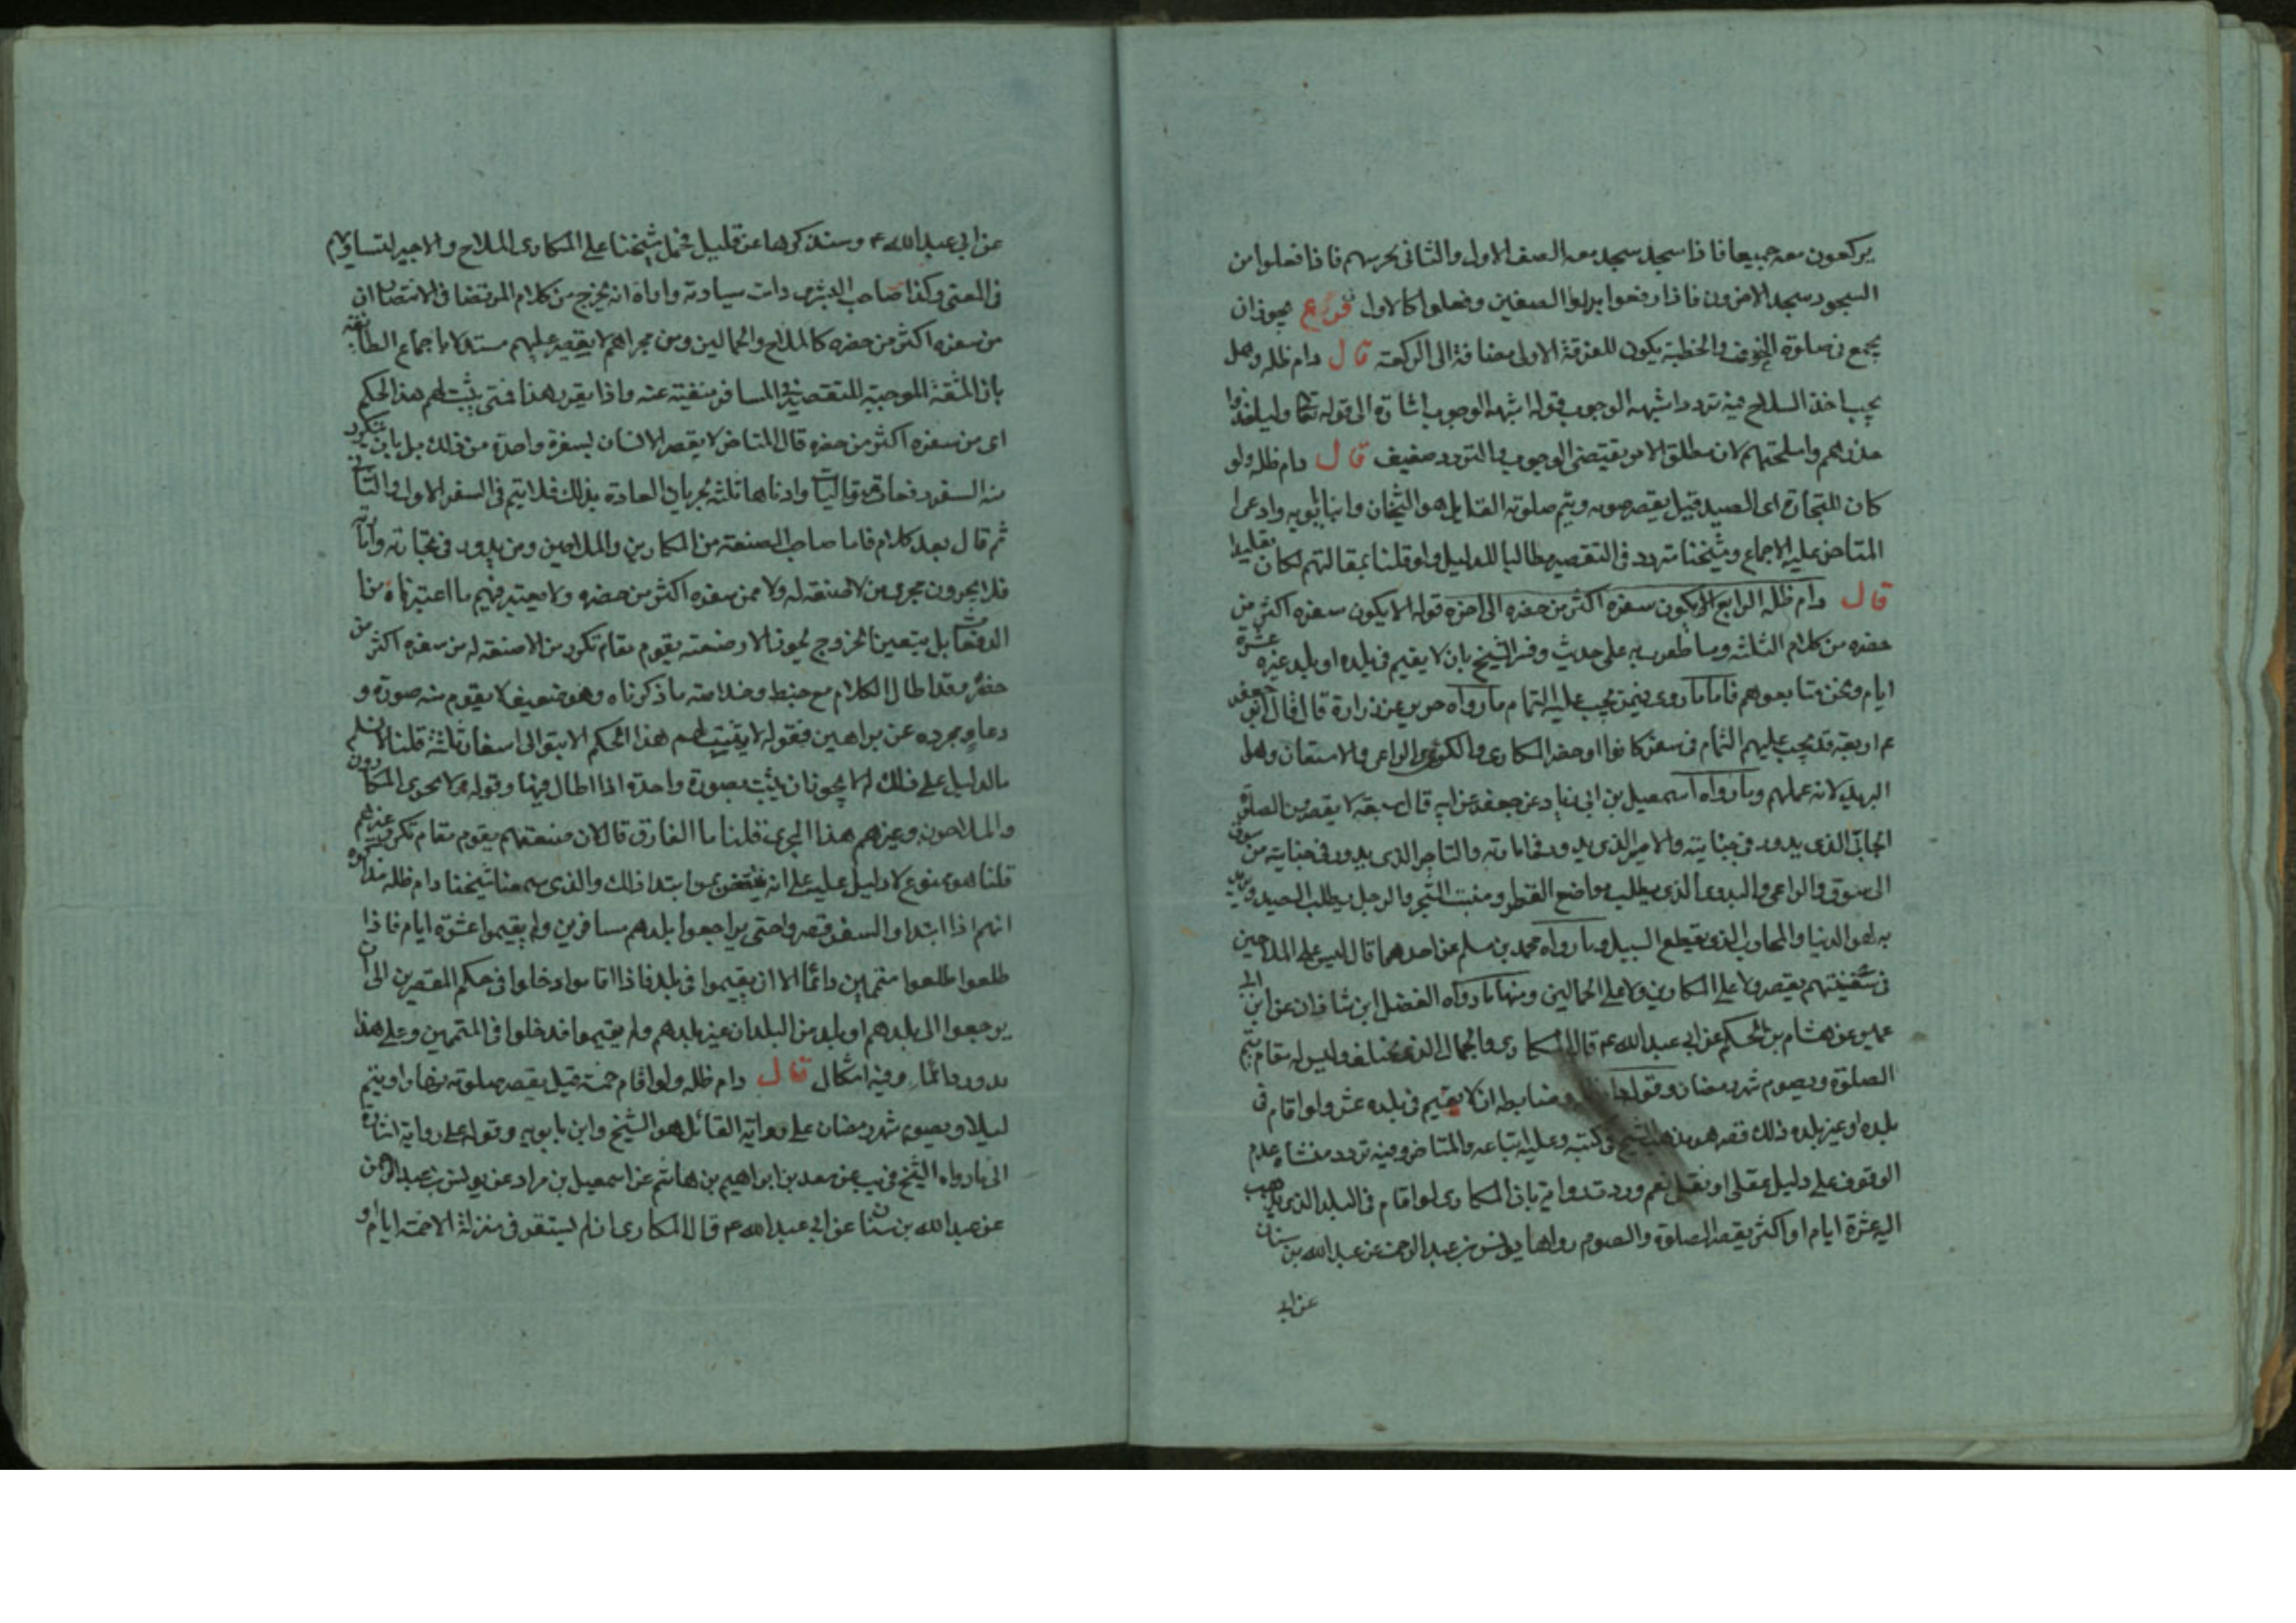 يركعون معه جميعا فاذا سجد سجد معه الصف الاول والثانى يحرسهم فاذا فعلوا من
السجود سجد الاخرون فاذا رفعوا بدلوا الصفين وفعلوا كالاول فروع يجوز ان
يجمع فى صلوة الخوف والخطبة يكون للفرقة الاولى مضافة الى الركعة قال دام ظله وهل
يجب اخذ السلاح فيه تردد اشبهه الوجوب قوله اشبهه الوجوب اشارة الى قوله تعالى وليأخذوا
حذرهم واسلحتهم لان مطلق الامر يقتضى الوجوب فالتردد ضعيف قال دام ظله ولو
كان للتجارة اى الصيد قيل يقصر صومه ويتم صلوته القايل هو الشيخان وابنا بابويه وادعى
المتاخر عليه الاجماع وشيخنا تردد فى التقصير مطالبا للدليل ولو قلنا بمقالتهم لكان تقليدا
قال دام ظله الرابع الا يكون سفره اكثر من حضره الى اخره قوله الا يكون سفره اكثر من
حضره من كلام الثلثة وما ظفرت به على حديث وفسر الشيخ بان لا يقيم فى بلده او بلد غيره عشرة
ايام ونحن نتابعهم فاما ما روى فيمن يجب عليه التمام ما رواه حريز عن زرارة قال قال ابو جعفر
ع اربعة قد يجب عليهم التمام فى سفر كانوا او حضر المكارى والكرى والراعى والاشتقان وهو
البريد لانه عملهم وما رواه اسمعيل بن ابى زياد عن جعفر عن ابيه قال سبعة لا يقصرون الصلوة
الجابى الذى يدور فى جبايته والامير الذى يدور فى امارته والتاجر الذى يدور فى تجارته من سوق
الى سوق والراعى والبدوى الذى يطلب مواضع القطر ومنبت الشجر والرجل يطلب الصيد ويريد
به لهو الدنيا والمحارب الذى يقطع السبيل وما رواه محمد بن مسلم عن احدهما قال ليس على الملاحين
فى سفينتهم تقصير ولا على المكارين ولا على الجمالين ومنها ما رواه الفضل ابن شاذان عن ابن ابى
عمير عن هشام بن الحكم عن ابى عبد الله ع قال المكارى والجمال الذى يختلف وليس له مقام يتم
الصلوة ويصوم شهر رمضان وقوله وضابطه ان لا يقيم فى بلده عشرا ولو اقام فى
بلده او غير بلده ذلك قصر هو مذهب الشيخ فى كتبه وعليه اتباعه والمتاخر وفيه تردد منشاه عدم
الوقوف على دليل عقلى او نقلى نعم وردت رواية بان المكارى لو اقام فى البلد الذى يذهب
اليه عشرة ايام او اكثر يقصر الصلوة والصوم رواها يونس بن عبد الرحمن عن عبد الله بن سنان
عن ابى
عن ابى عبد الله ع وسنذكرها عن قليل فحمل شيخنا على المكارى الملاح والاجير لتساويهم
فى المعنى وكذا صاحب البشرى دامت سيادته واراه انه يخرج من كلام المرتضا فى الانتصار ان
من سفره اكثر من حضره كالملاح والجمالين ومن مجراهم لا يقصر عليهم مستدلا باجماع الطائفة
بان المشقة الموجبة للتقصير فى المسافر منفية عنه واذا تقرر هذا فمتى يثبت لهم هذا الحكم
اى من سفره اكثر من حضره قال المتاخر لا يقصر الانسان بسفرة واحدة من ذلك بل بان يتكرر
منه السفر دفعات وادناها ثلثة بجريان العادة بذلك فلا يتم فى السفر الاول والثانى
ثم قال بعد كلام فاما صاحب الصنعة من المكارين والملاحين ومن يدور فى تجارته وامارته
فلا يجرون مجرى من لا صنعة له ولا ممن سفره اكثر من حضره ولا يعتبر فيهم ما اعتبرناه من
الدفعات بل يتعين الخروج يجوز لان صنعته يقوم مقام تكرر من لا صنعة له من سفره اكثر من
حضره وقد اطال الكلام مع خبط وخلاصته ما ذكرناه وهو ضعيف لا يقوم منه صورة و
دعاو مجرده عن براهين فقوله لا يثبت لهم هذا الحكم الا بتوالى اسفار ثلثة قلنا لا نسلم
ما الدليل على ذلك لم لا يجوز ان يثبت بصورة واحدة اذا اطال فيها وقوله لا يجرى المكارون
والملاحون وغيرهم هذا المجرى قلنا ما الفارق قال لان صنعتهم يقوم مقام تكرر غيرهم
قلنا هو ممنوع لا دليل عليه على انه والذى سمعنا شيخنا دام ظله مذاكرة
انهم اذا ابتداوا السفر قصروا حتى يراجعوا بلدهم مسافرين ولم يقيموا عشرة ايام فاذا
طلعوا طلعوا متممين دائما الا ان يقيموا فى بلد فاذا اقاموا دخلوا فى حكم المقصرين الى ان
يرجعوا الى بلدهم او بلد من البلدان غير بلدهم ولم يقيموا فدخلوا فى المتممين وعلى هذا
يدور دائما وفيه اشكال قال دام ظله ولو اقام خمسة قيل يقصر صلوته نهارا ويتم
ليلا ويصوم شهر رمضان على رواية القائل هو الشيخ وابن بابويه وقوله على رواية اشارة
الى ما رواه الشيخ فى يب عن سعد بن ابراهيم بن هاشم عن اسمعيل بن مراد عن يونس بن عبد الرحمن
عن عبد الله بن سنان عن ابى عبد الله ع قال المكارى ان لم يستقر فى منزله الا خمسة ايام او